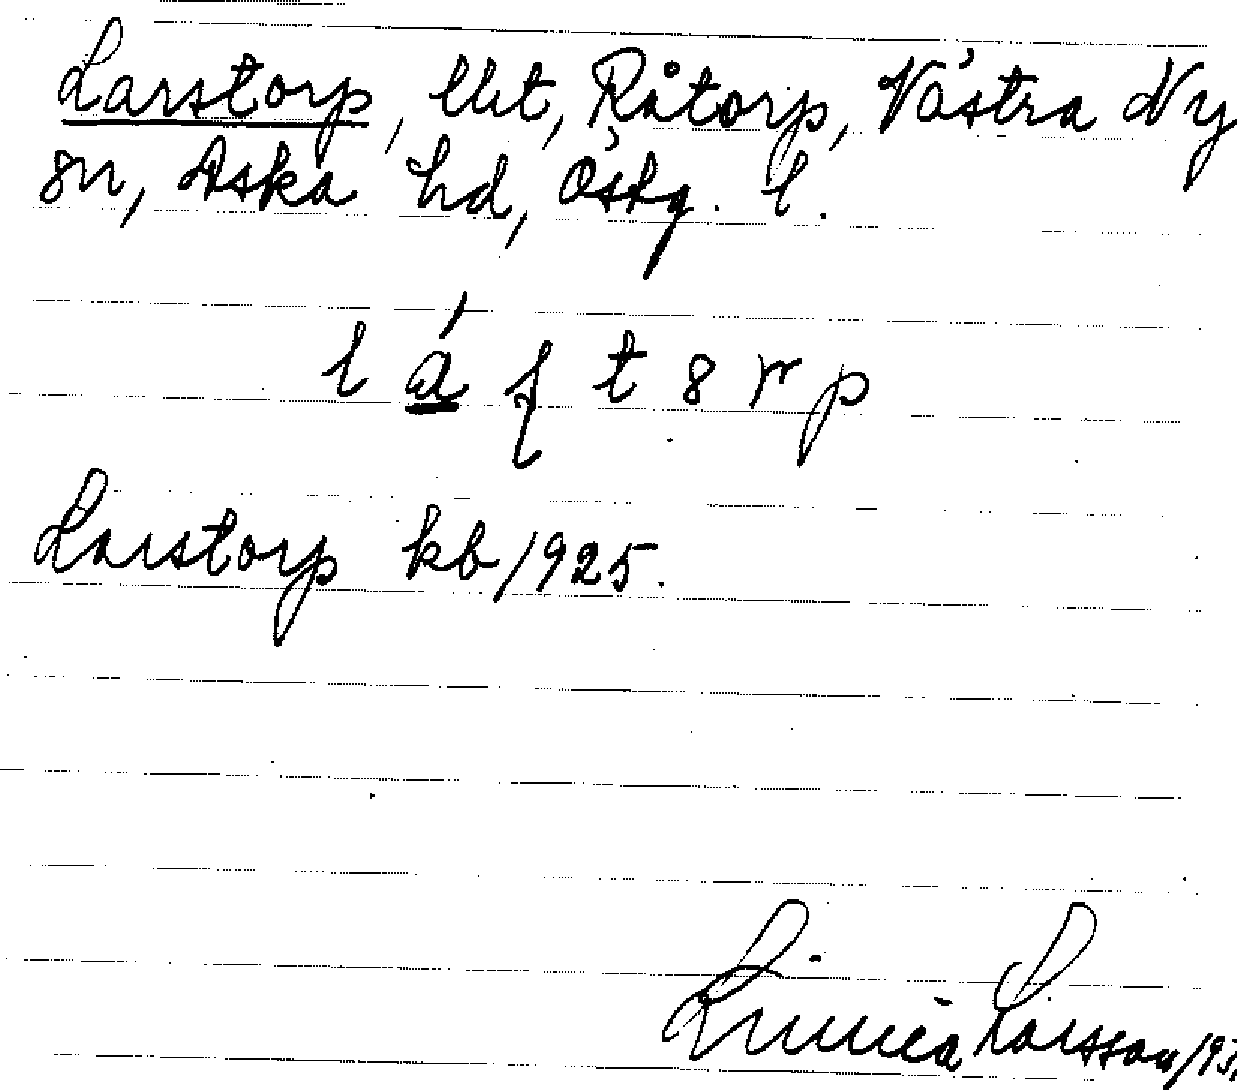 Larstorp, lht, Råtorp, Västra Ny
sn, Aska hd, Östg. l.
Larstorp kb/1925.
Linnéa Larsson/193